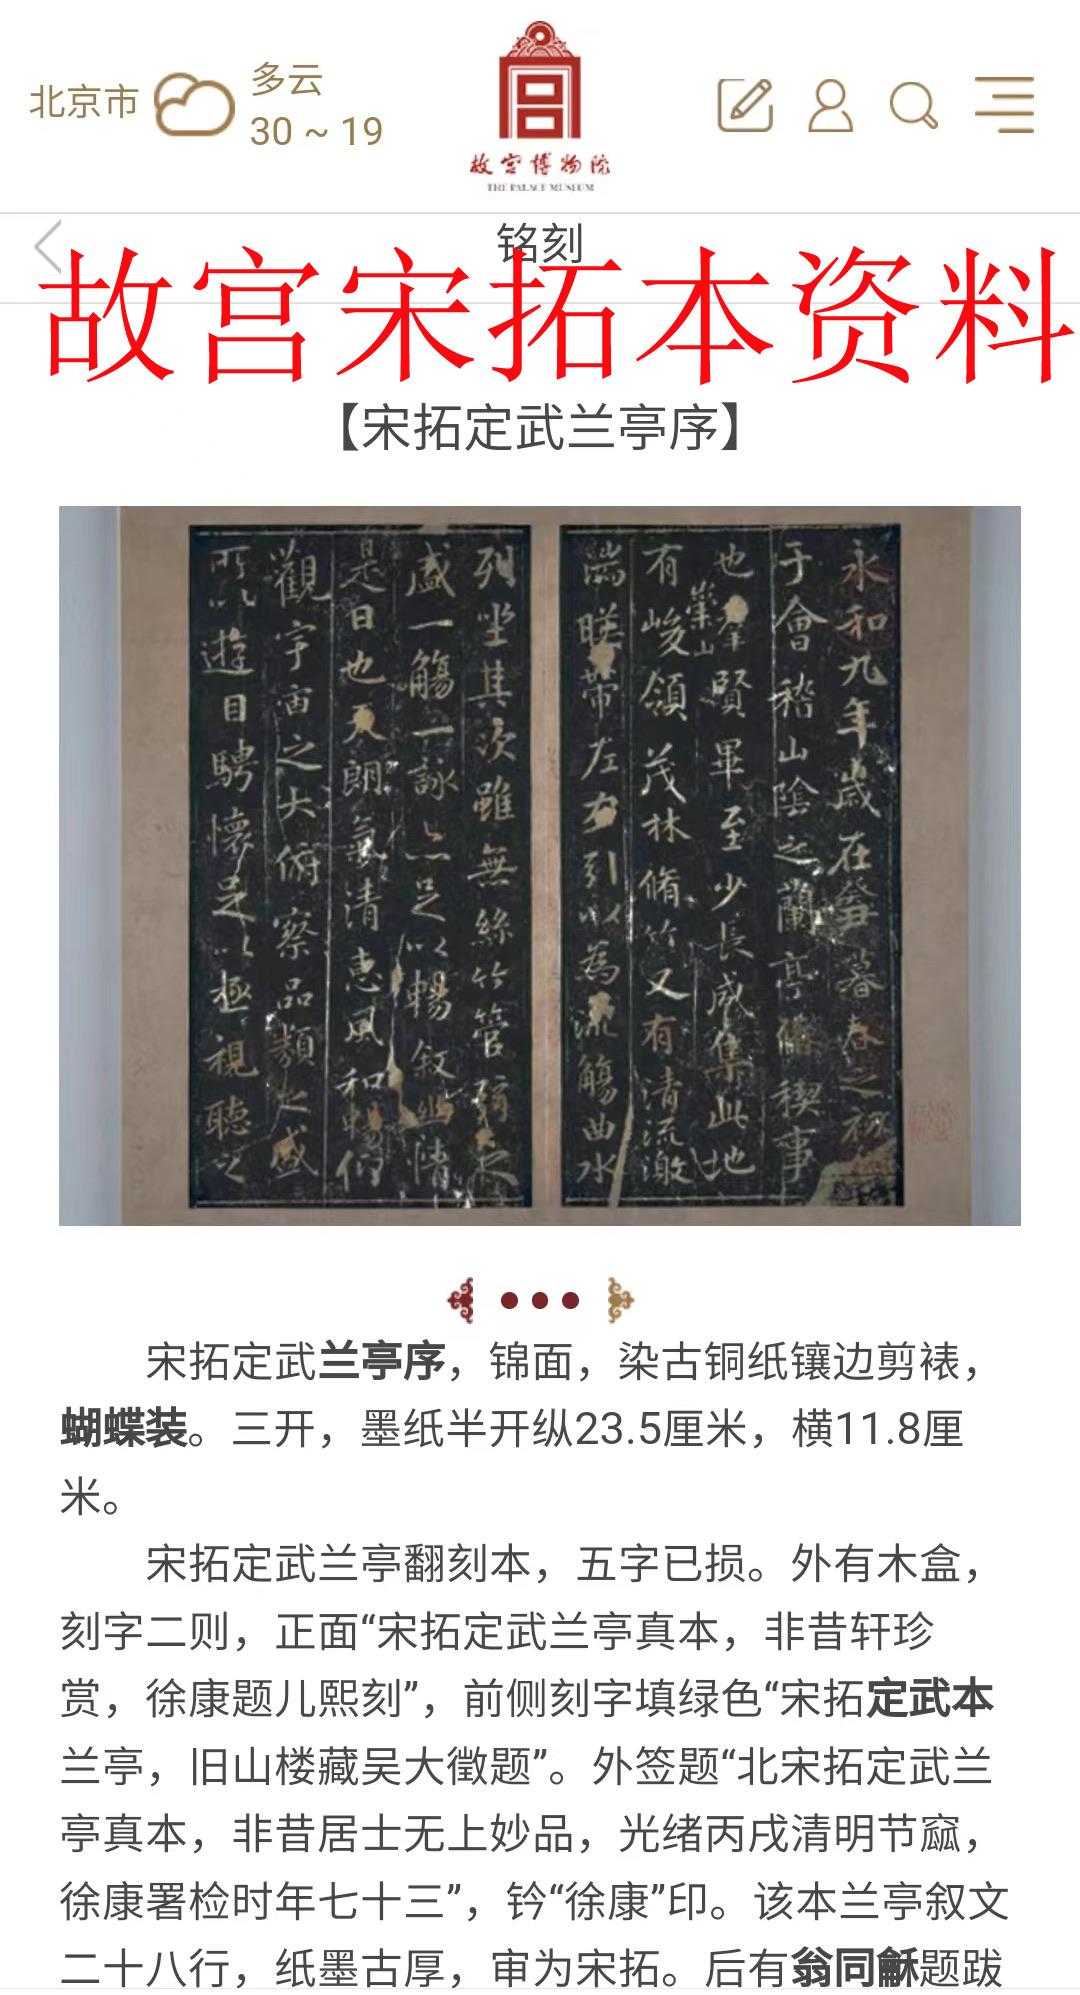 北京市
多云
30 ~ 19
故宫博物院
THE PALACE MUSEUM
铭刻
故宫宋拓本资料
【宋拓定武兰亭序】
永和九年歲在癸丑暮春之初
于會稽山陰之蘭亭脩稧事
也羣賢畢至少長咸集此地
崇山
有峻領茂林脩竹又有清流激
湍暎帶左右引以為流觴曲水
列坐其次雖無絲竹管弦之
盛一觴一詠亦足以暢叙幽情
是日也天朗氣清惠風和暢仰
觀宇宙之大俯察品類之盛
所以遊目騁懷足以極視聽之
宋拓定武兰亭序，锦面，染古铜纸镶边剪裱，
蝴蝶装。三开，墨纸半开纵23.5厘米，横11.8厘
米。
宋拓定武兰亭翻刻本，五字已损。外有木盒，
刻字二则，正面“宋拓定武兰亭真本，非昔轩珍
赏，徐康题儿熙刻”，前侧刻字填绿色“宋拓定武本
兰亭，旧山楼藏吴大徵题”。外签题“北宋拓定武兰
亭真本，非昔居士无上妙品，光绪丙戌清明节窳，
徐康署检时年七十三”，钤“徐康”印。该本兰亭叙文
二十八行，纸墨古厚，审为宋拓。后有翁同龢题跋